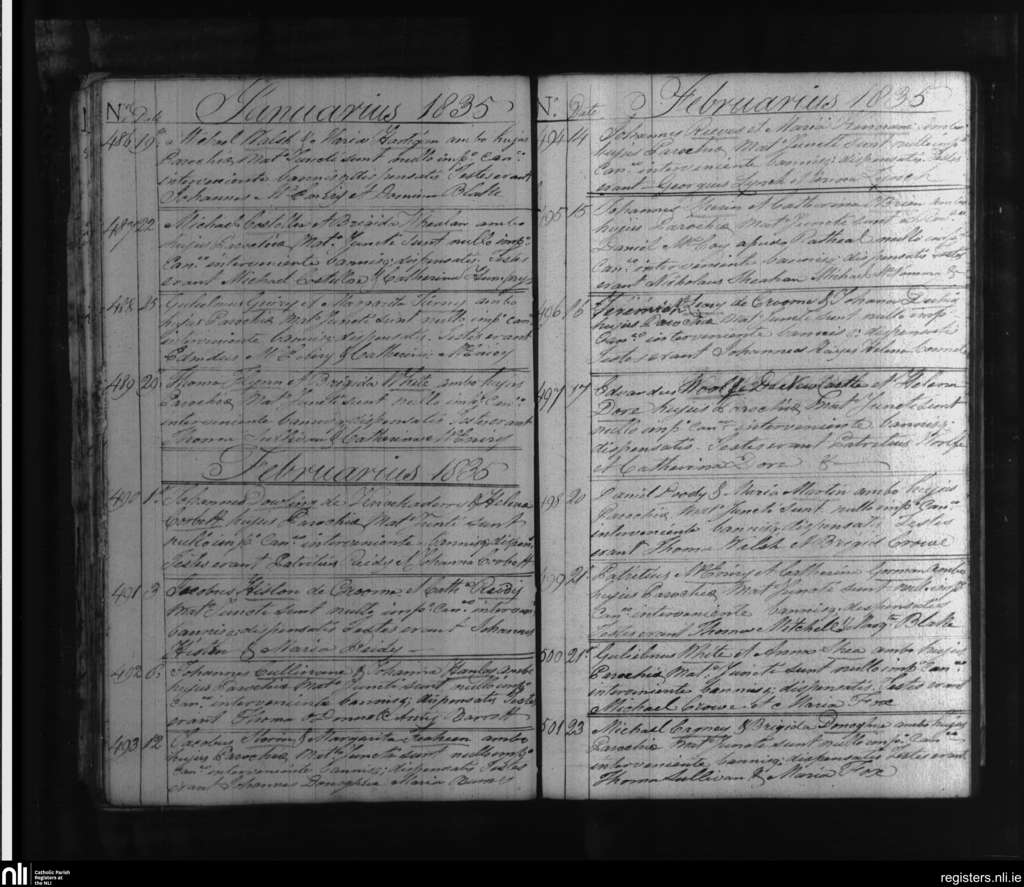 No. Date Januarius 1835
486 19 Michael Walsh & Maria Hartigan ambo hujus
Parochiæ Mato. Juncti sunt nullo impo. Cano.
interveniente bannisq; dispensatis Testes erant
Johannes McEniry et Blake
487 22 Michael Costelloe et Brigida Whealan ambo
hujus Parochiæ Mato. Juncti sunt nullo impo.
Cano. interveniente bannisq; dispensatis Testes
erant Michael Costelloe & Catherina
488 25 Gulielmus et Margarita ambo
hujus Parochiæ Mato. Juncti sunt nullo impo. Cano.
interveniente bannisq; dispensatis Testes erant
& Catherina McEniry
489 20 Thoma Flynn et Brigida White ambo hujus
Parochiæ Mato. Juncti sunt nullo impo. Cano.
interveniente bannisq; dispensatis Testes erant
Thoma Sullivan & Catherina McEniry
Februarius 1835
490 1 Johannes Dowling de & Helena
Corbett hujus Parochiæ Mato. Juncti sunt
nullo impo. Cano. interveniente bannisq; dispens.
Testes erant Patritius Reidy et Johanna Corbett
491 3 Jacobus Histon de Croome et Catha. Reidy
Mato. Juncti sunt nullo impo. Cano. interven
bannisq; dispensatis Testes erant Johannes
Histon & Maria Reidy
492 5 Johannes Cullinane & Johanna Hanlon ambo
hujus Parochiæ Mato. Juncti sunt nullo impo.
Cano. interveniente bannisq; dispensatis Testes
erant Thoma O Donnel & Anny Barrett
493 12 Jacobus & Margarita ambo
hujus Parochiæ Mato. Juncti sunt nullo impo.
Cano. interveniente bannisq; dispensatis Testes
erant Johannes Donoghue Maria
No. Date Februarius 1835
494 14 Johannes Reeves et Maria ambo
hujus Parochiæ Mato. Juncti sunt nullo impo.
Cano. interveniente bannisq; dispensatis Testes
erant Georgius Lynch et Lynch
495 15 Johannes et Catherina McBrien ambo
hujus Parochiæ Mato. Juncti sunt
Daniel McCoy apud Ratheal nullo impo.
Cano. interveniente bannisq; dispensatis Testes
erant Nicholaus Sheahan Michael &
496 16 Jeremiah de Croome & Johanna
hujus Parochiæ Mato. Juncti sunt nullo impo.
Cano. interveniente bannisq; dispensatis
Testes erant Johannes Hayes Helena Connel
497 17 Edvardus Woolfe De NewCastle et Helena
Dore hujus Parochiæ Mato. Juncti sunt
nullo impo. Cano. interveniente bannisq;
dispensatis Testes erant Patritius Woolfe
et Catherina Dore &
498 20 Daniel Dordy & Maria Martin ambo hujus
Parochiæ Mato. Juncti sunt nullo impo. Cano.
interveniente bannisq; dispensatis Testes
erant Thoma Walsh et Brigid Crowe
499 21 Patritius McEniry et Catherina Gorman ambo
hujus Parochiæ Mato. Juncti sunt nullo impo.
Cano. interveniente bannisq; dispensatis
Testes erant Thoma Mitchell & Blake
500 21 Gulielmus White et Anna Shea ambo hujus
Parochiæ Mato. Juncti sunt nullo impo. Cano.
interveniente bannisq; dispensatis Testes erant
Michael Crowe et Maria Fox
501 23 Michael & Brigida Donoghue ambo hujus
Parochiæ Mato. Juncti sunt nullo impo. Cano.
interveniente bannisq; dispensatis Testes erant
Thoma Sullivan & Maria Fox
nli Catholic Parish
Registers at
the NLI
registers.nli.ie